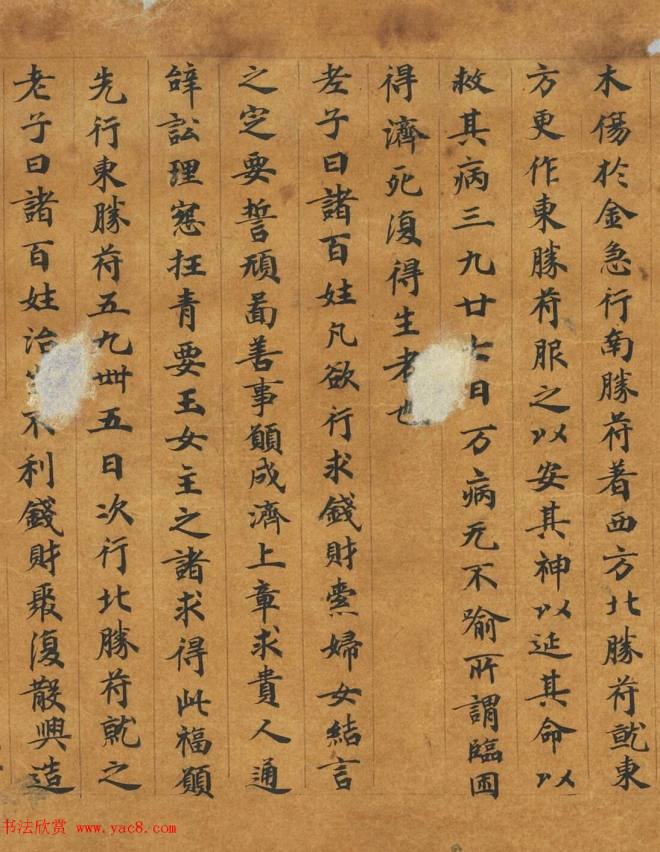 木傷於金急行南勝苻著西方北勝苻就東
方更作東勝苻服之以安其神以延其命以
救其病三九廿七日万病无不踰所謂臨困
得濟死復得生者也
老子曰諸百姓凡欲行求錢財索婦女結言
之定要誓碩啚善事願成濟上章求貴人通
辭訟理寃枉青要玉女主之諸求得此福願
先行東勝苻五九卌五日次行北勝苻就之
老子曰諸百姓治生不利錢財聚復散興造
书法欣赏 www.yac8.com